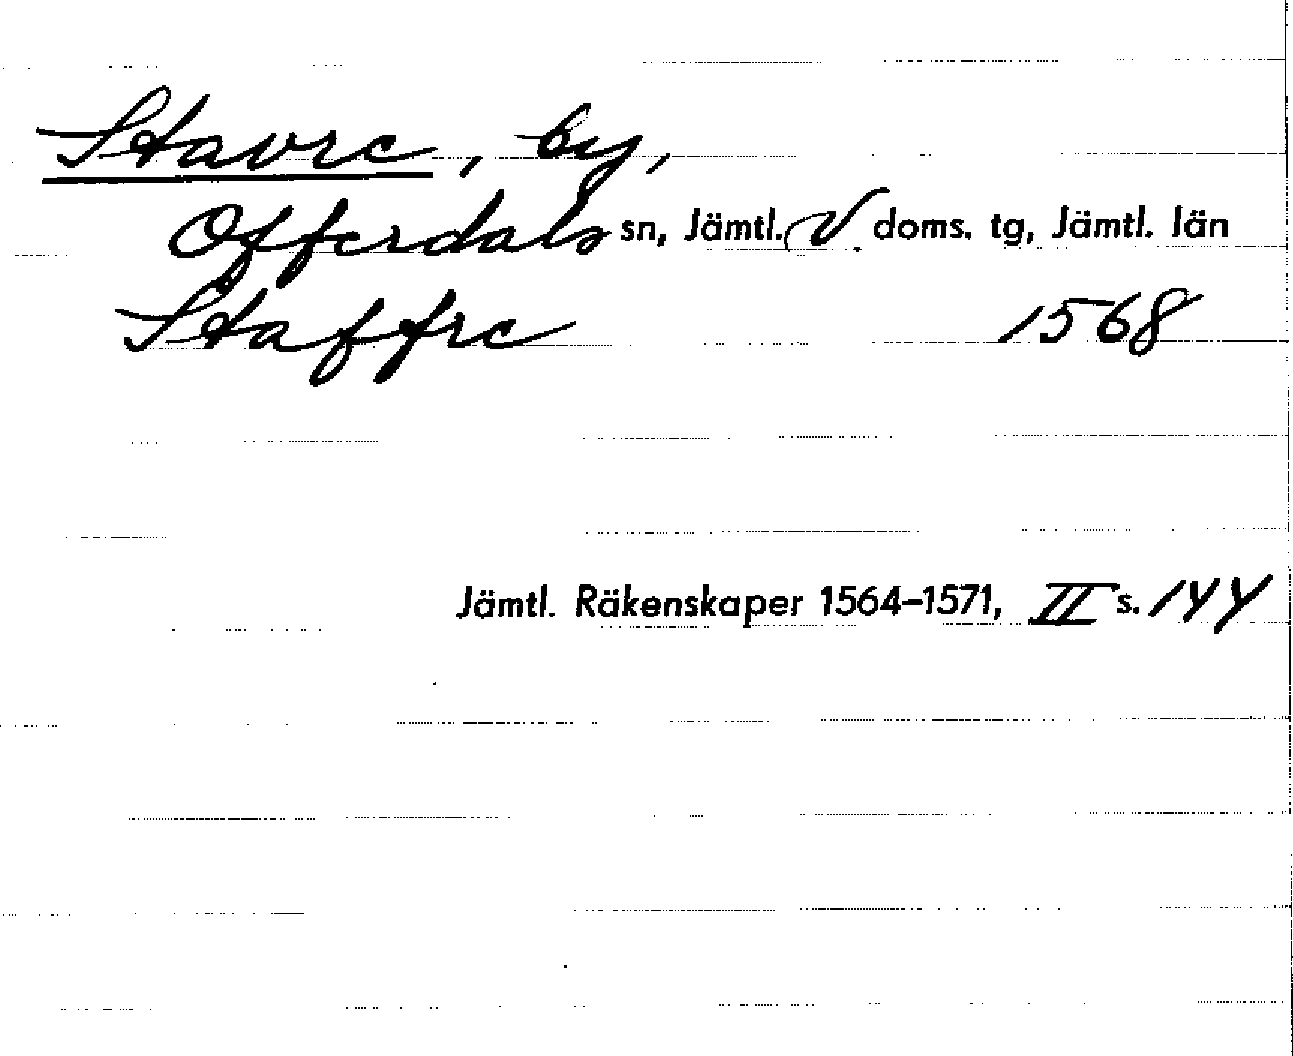 Stavre, by,
Offerdals sn, Jämtl. V. doms. tg, Jämtl. län
Staffre 1568
Jämtl. Räkenskaper 1564–1571, II s. 144